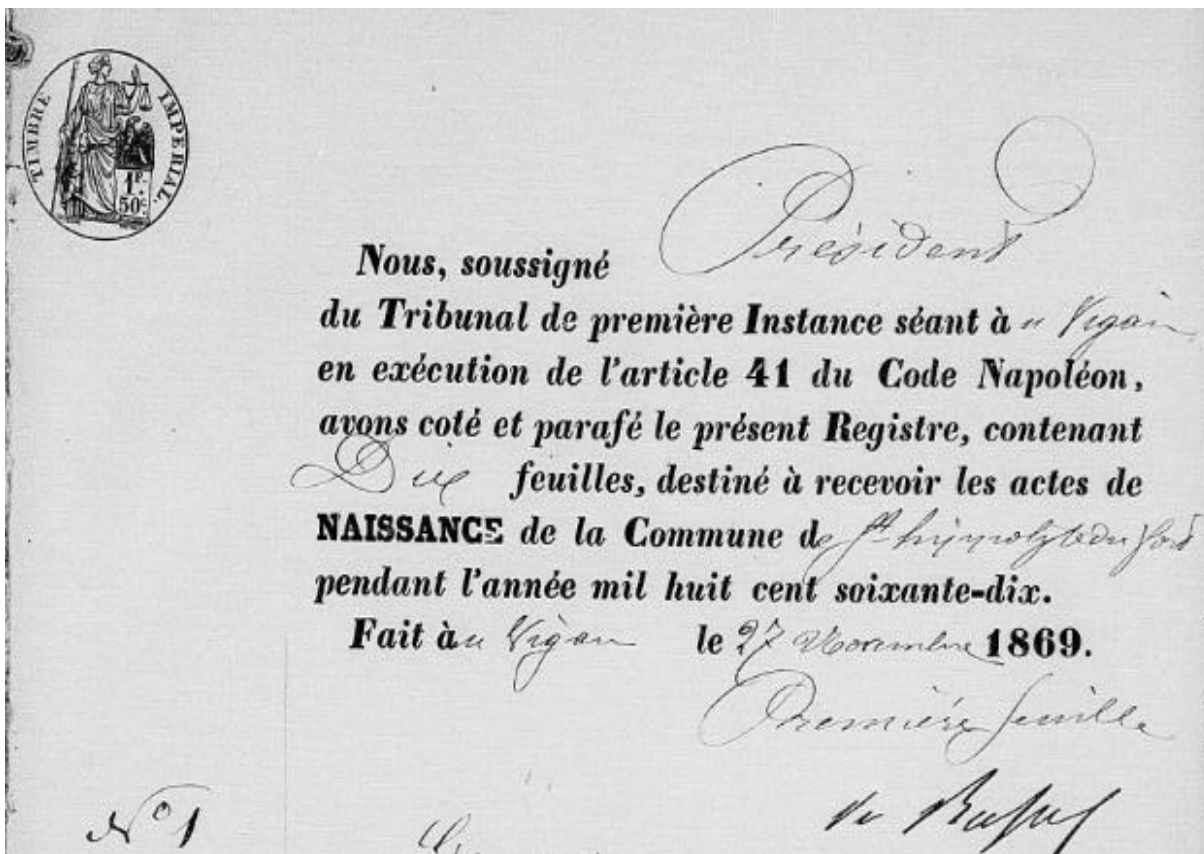 TIMBRE IMPERIAL.
1F.
50c
Président
Nous, soussigné
du Tribunal de première Instance séant à u Vigan
en exécution de l'article 41 du Code Napoléon,
avons coté et parafé le présent Registre, contenant
Dix feuilles, destiné à recevoir les actes de
NAISSANCE de la Commune de St hippolyte du fort
pendant l'année mil huit cent soixante-dix.
Fait à u Vigan le 27 Novembre 1869.
Première feuille
No 1